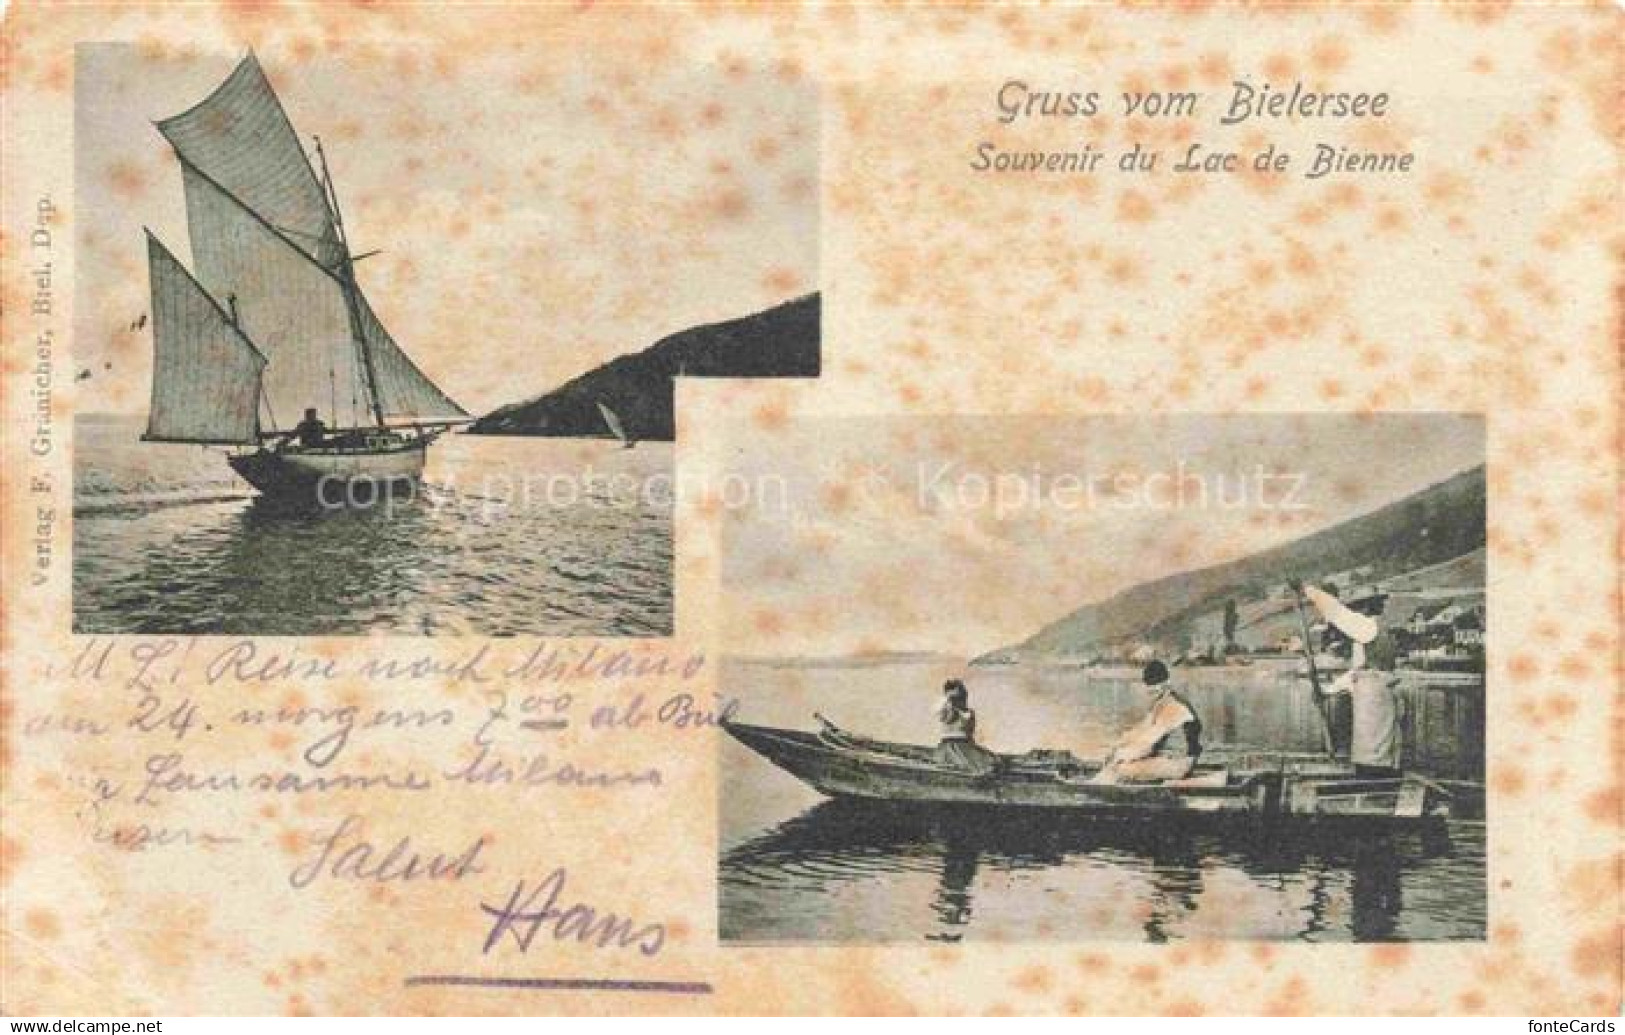 Gruss vom Bielersee
Souvenir du Lac de Bienne
Verlag F. Gränicher, Biel. Dep.
copy protection Kopierschutz
M L! Reise nach Milano
am 24. morgens 7 00 ab Biel
Lausanne Milano
Salut
Hans
www.delcampe.net
fonteCards